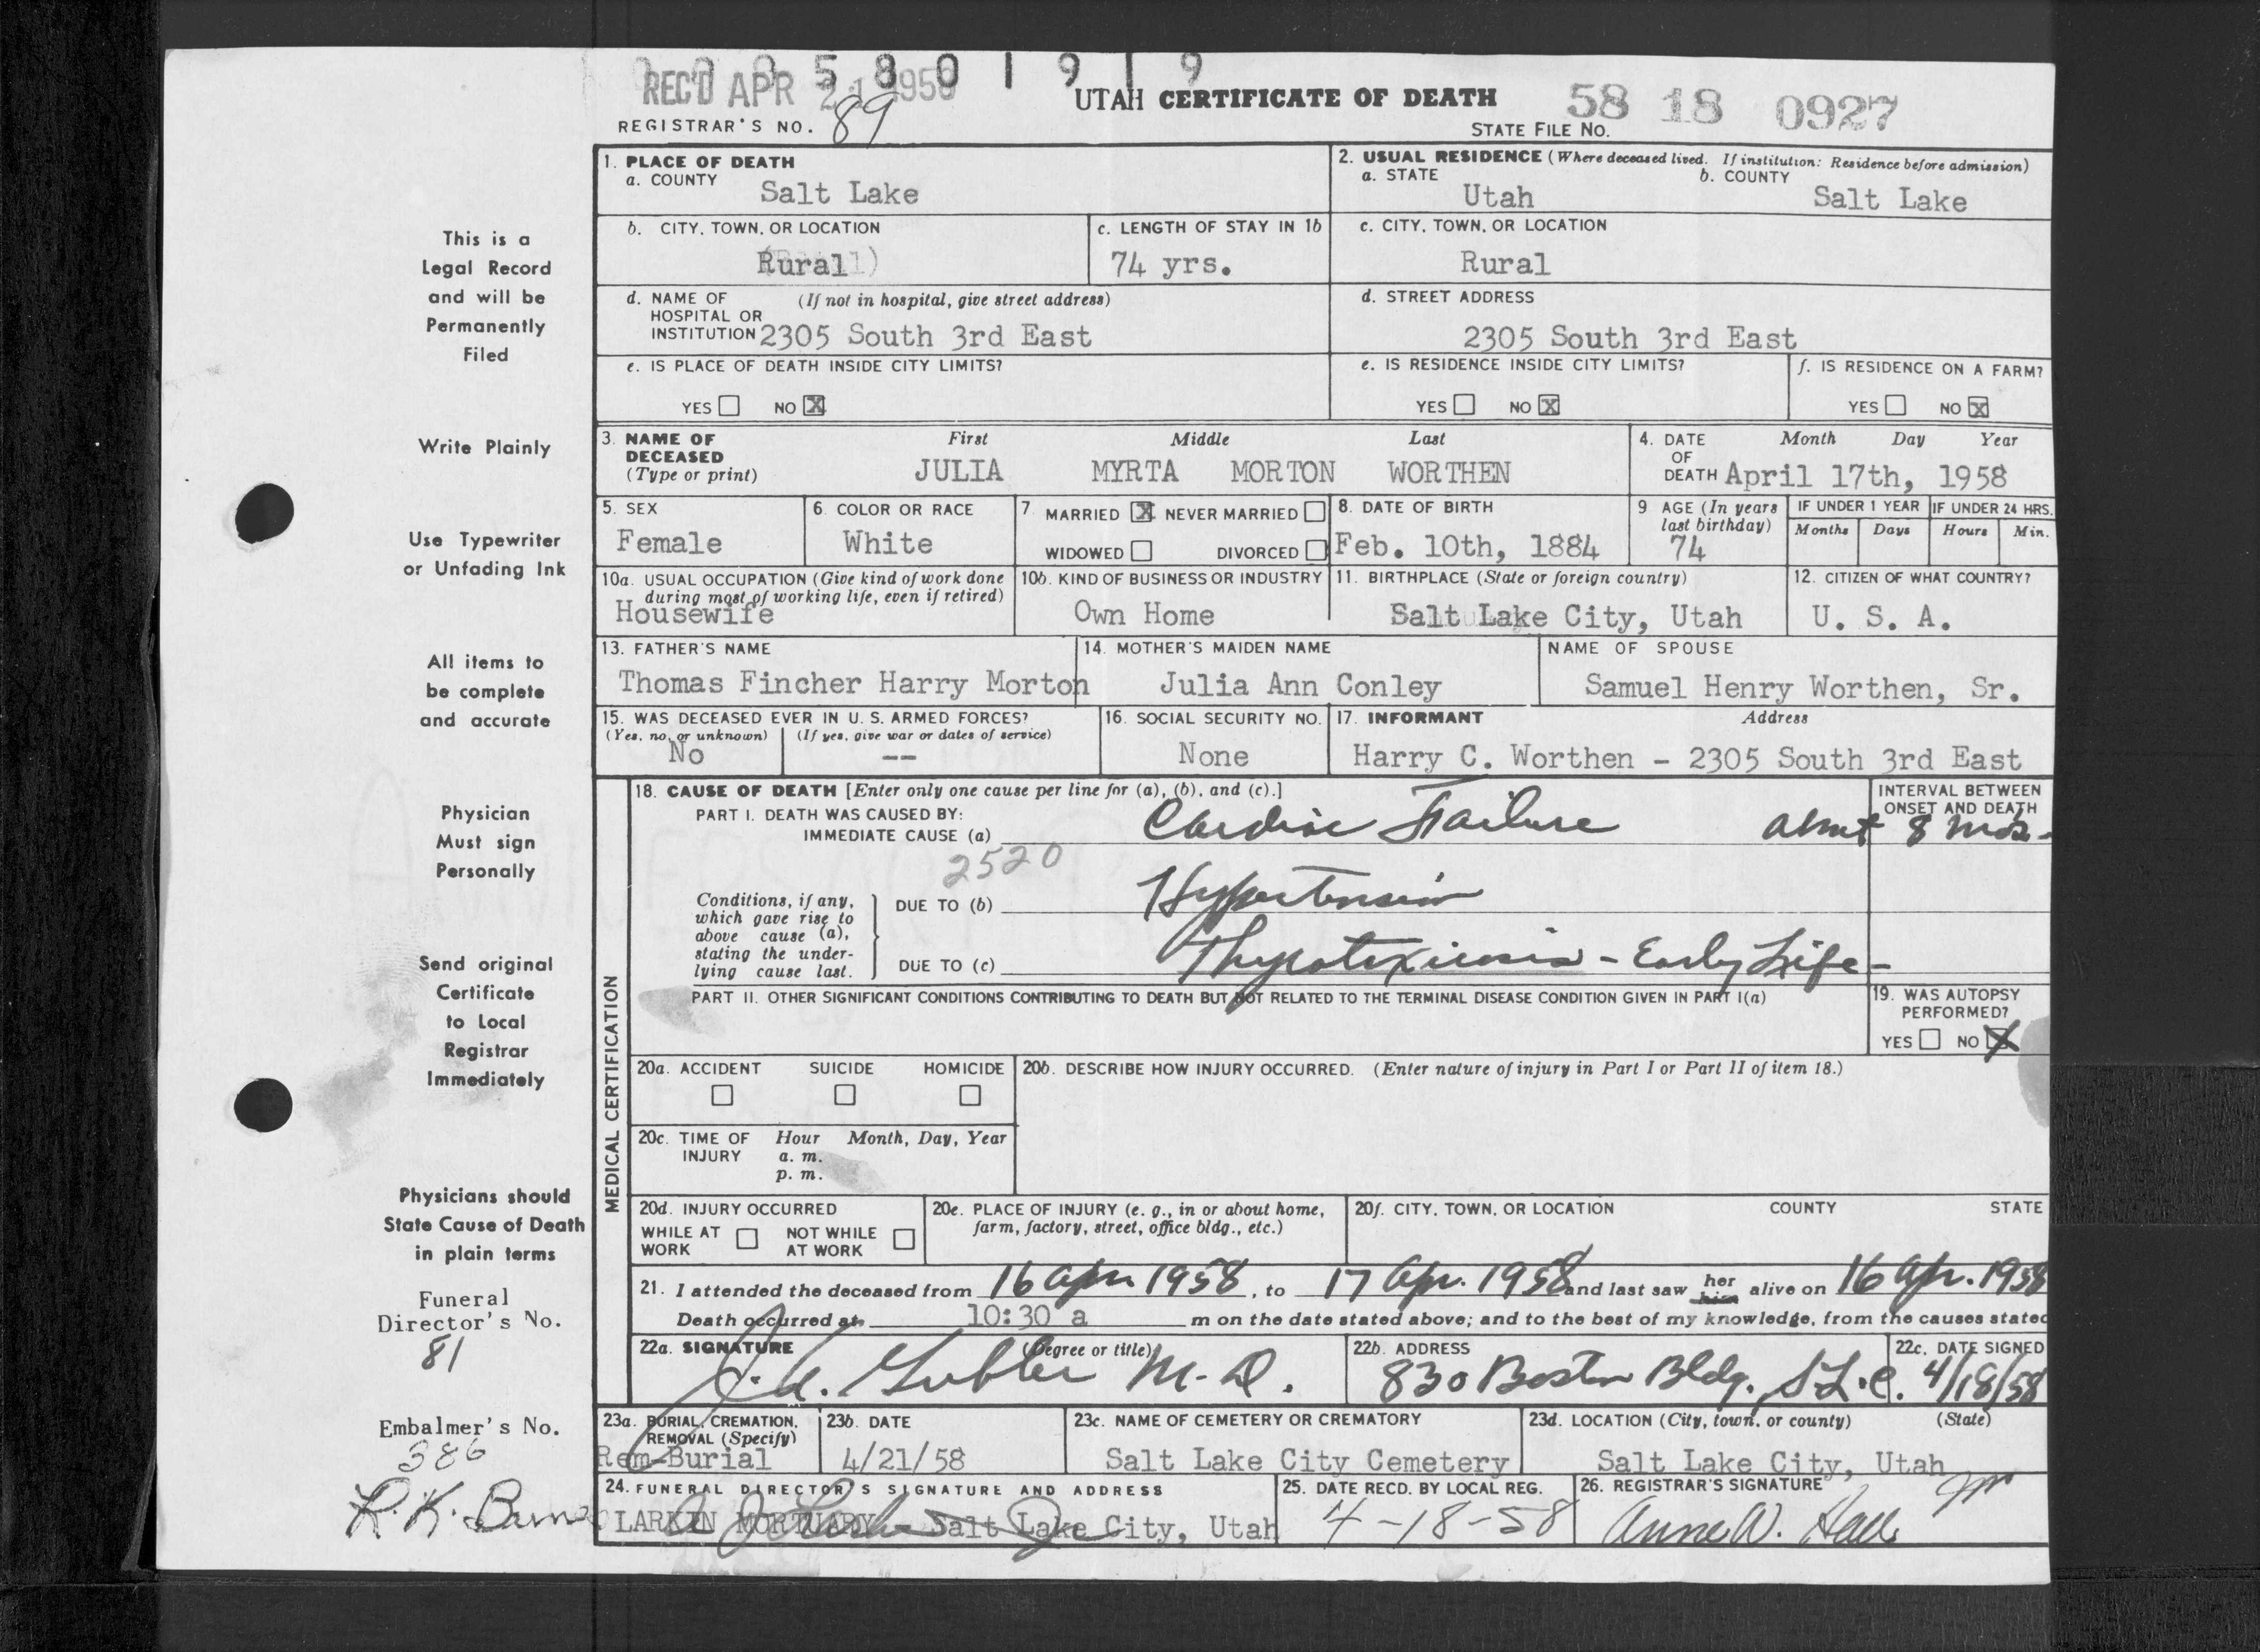 005801919
REC'D APR 21 1958
UTAH CERTIFICATE OF DEATH
58 18 0927
REGISTRAR'S NO. 89
STATE FILE NO.
This is a
Legal Record
and will be
Permanently
Filed
Write Plainly
Use Typewriter
or Unfading Ink
All items to
be complete
and accurate
Physician
Must sign
Personally
Send original
Certificate
to Local
Registrar
Immediately
Physicians should
State Cause of Death
in plain terms
Funeral
Director's No.
81
Embalmer's No.
386
1. PLACE OF DEATH
a. COUNTY
Salt Lake
2. USUAL RESIDENCE (Where deceased lived. If institution: Residence before admission)
a. STATE
Utah
b. COUNTY
Salt Lake
b. CITY, TOWN, OR LOCATION
Rural
c. LENGTH OF STAY IN 1b
74 yrs.
c. CITY, TOWN, OR LOCATION
Rural
d. NAME OF (If not in hospital, give street address)
HOSPITAL OR
INSTITUTION 2305 South 3rd East
d. STREET ADDRESS
2305 South 3rd East
e. IS PLACE OF DEATH INSIDE CITY LIMITS?
YES NO X
e. IS RESIDENCE INSIDE CITY LIMITS?
YES NO X
f. IS RESIDENCE ON A FARM?
YES NO X
3. NAME OF DECEASED
(Type or print)
First Middle Last
JULIA MYRTA MORTON WORTHEN
4. DATE OF DEATH
Month Day Year
April 17th, 1958
5. SEX
Female
6. COLOR OR RACE
White
7. MARRIED X NEVER MARRIED
WIDOWED DIVORCED
8. DATE OF BIRTH
Feb. 10th, 1884
9 AGE (In years
last birthday)
74
IF UNDER 1 YEAR
Months Days
IF UNDER 24 HRS.
Hours Min.
10a. USUAL OCCUPATION (Give kind of work done
during most of working life, even if retired)
Housewife
10b. KIND OF BUSINESS OR INDUSTRY
Own Home
11. BIRTHPLACE (State or foreign country)
Salt Lake City, Utah
12. CITIZEN OF WHAT COUNTRY?
U. S. A.
13. FATHER'S NAME
Thomas Fincher Harry Morton
14. MOTHER'S MAIDEN NAME
Julia Ann Conley
NAME OF SPOUSE
Samuel Henry Worthen, Sr.
15. WAS DECEASED EVER IN U. S. ARMED FORCES?
(Yes, no, or unknown) (If yes, give war or dates of service)
No --
16. SOCIAL SECURITY NO.
None
17. INFORMANT Address
Harry C. Worthen - 2305 South 3rd East
MEDICAL CERTIFICATION
18. CAUSE OF DEATH [Enter only one cause per line for (a), (b), and (c).]
INTERVAL BETWEEN
ONSET AND DEATH
PART I. DEATH WAS CAUSED BY:
IMMEDIATE CAUSE (a) Cardiac Failure about 8 mos-
2520
Conditions, if any,
which gave rise to
above cause (a),
stating the under-
lying cause last.
DUE TO (b) Hypertension
DUE TO (c) Thyrotoxicosis - Early Life -
PART II. OTHER SIGNIFICANT CONDITIONS CONTRIBUTING TO DEATH BUT NOT RELATED TO THE TERMINAL DISEASE CONDITION GIVEN IN PART I(a)
19. WAS AUTOPSY
PERFORMED?
YES NO X
20a. ACCIDENT SUICIDE HOMICIDE
20b. DESCRIBE HOW INJURY OCCURRED. (Enter nature of injury in Part I or Part II of item 18.)
20c. TIME OF Hour Month, Day, Year
INJURY a. m.
p. m.
20d. INJURY OCCURRED
WHILE AT WORK NOT WHILE AT WORK
20e. PLACE OF INJURY (e. g., in or about home,
farm, factory, street, office bldg., etc.)
20f. CITY, TOWN, OR LOCATION COUNTY STATE
21. I attended the deceased from 16 Apr. 1958, to 17 Apr. 1958 and last saw her him alive on 16 Apr. 1958
Death occurred at 10:30 a m on the date stated above; and to the best of my knowledge, from the causes stated
22a. SIGNATURE (Degree or title)
Gubler M.D.
22b. ADDRESS
830 Boston Bldg., S.L.C.
22c. DATE SIGNED
4/18/58
23a. BURIAL, CREMATION,
REMOVAL (Specify)
Rem-Burial
23b. DATE
4/21/58
23c. NAME OF CEMETERY OR CREMATORY
Salt Lake City Cemetery
23d. LOCATION (City, town, or county) (State)
Salt Lake City, Utah
24. FUNERAL DIRECTOR'S SIGNATURE AND ADDRESS
LARKIN MORTUARY Salt Lake City, Utah
25. DATE RECD. BY LOCAL REG.
4-18-58
26. REGISTRAR'S SIGNATURE
Anne W. Hall